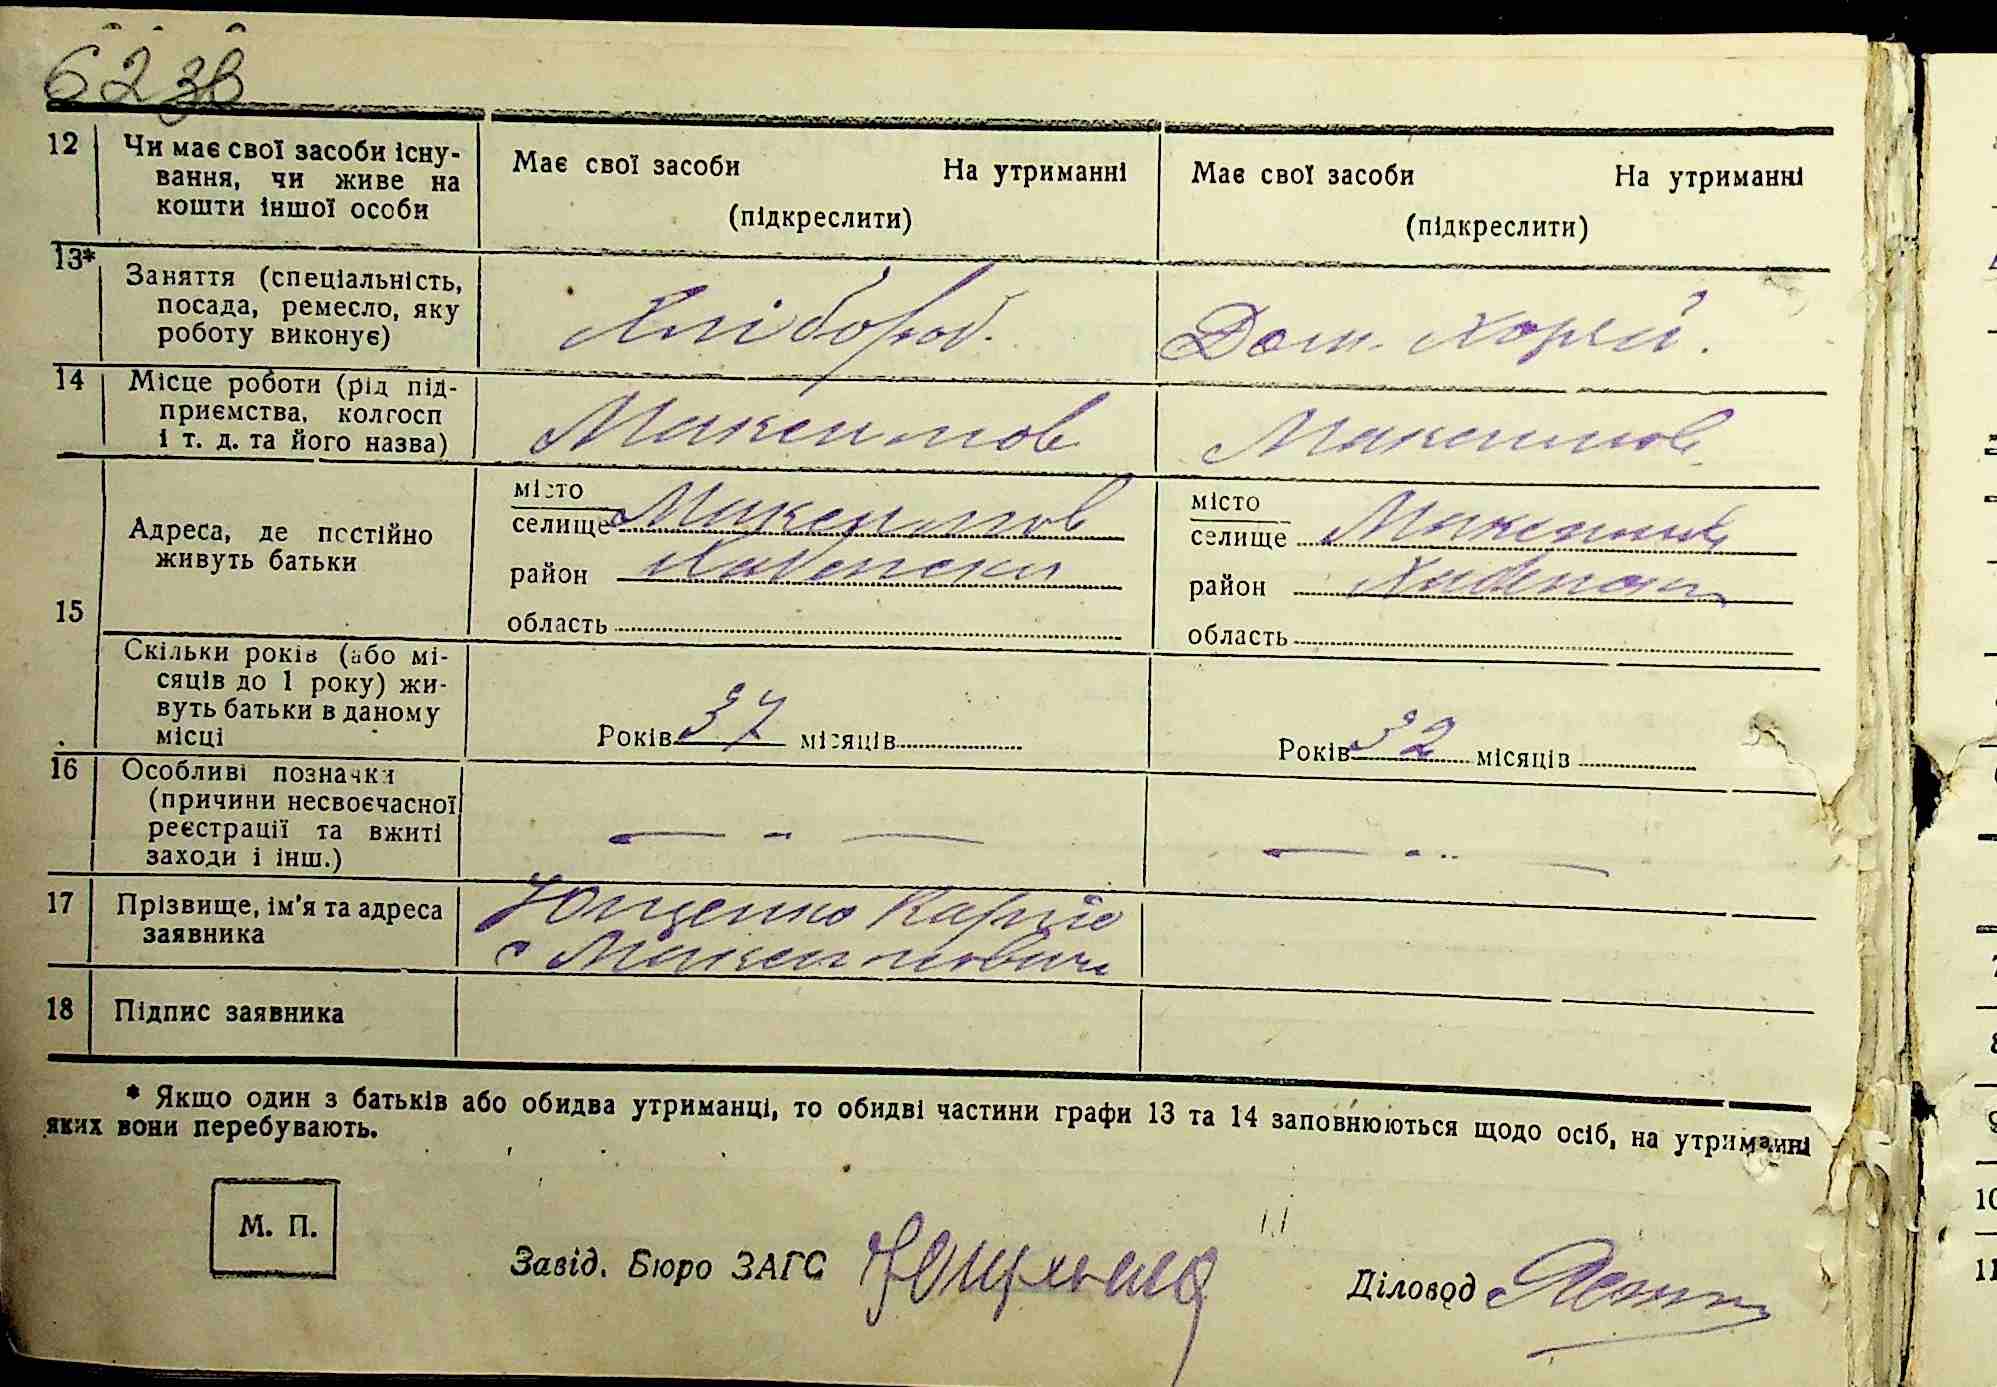 62 зв
12 Чи має свої засоби існу-
вання, чи живе на
кошти іншої особи
Має свої засоби На утриманні
(підкреслити)
Має свої засоби На утриманні
(підкреслити)
13* Заняття (спеціальність,
посада, ремесло, яку
роботу виконує)
Хлібороб.
Дом. Хоряй.
14 Місце роботи (рід під-
приємства, колгосп
і т. д. та його назва)
Максимов
Максимов
15 Адреса, де постійно
живуть батьки
місто
селище Максимов
район Хабенски
область
місто
селище Максимов
район Хабенски
область
Скільки років (або мі-
сяців до 1 року) жи-
вуть батьки в даному
місці
Років 37 місяців
Років 32 місяців
16 Особливі позначки
(причини несвоєчасної
реєстрації та вжиті
заходи і інш.)
17 Прізвище, ім'я та адреса
заявника
Ющенко Карпо
с Максимович
18 Підпис заявника
* Якщо один з батьків або обидва утриманці, то обидві частини графи 13 та 14 заповнюються щодо осіб, на утриманні
яких вони перебувають.
М. П.
Завід. Бюро ЗАГС
Діловод
10
11